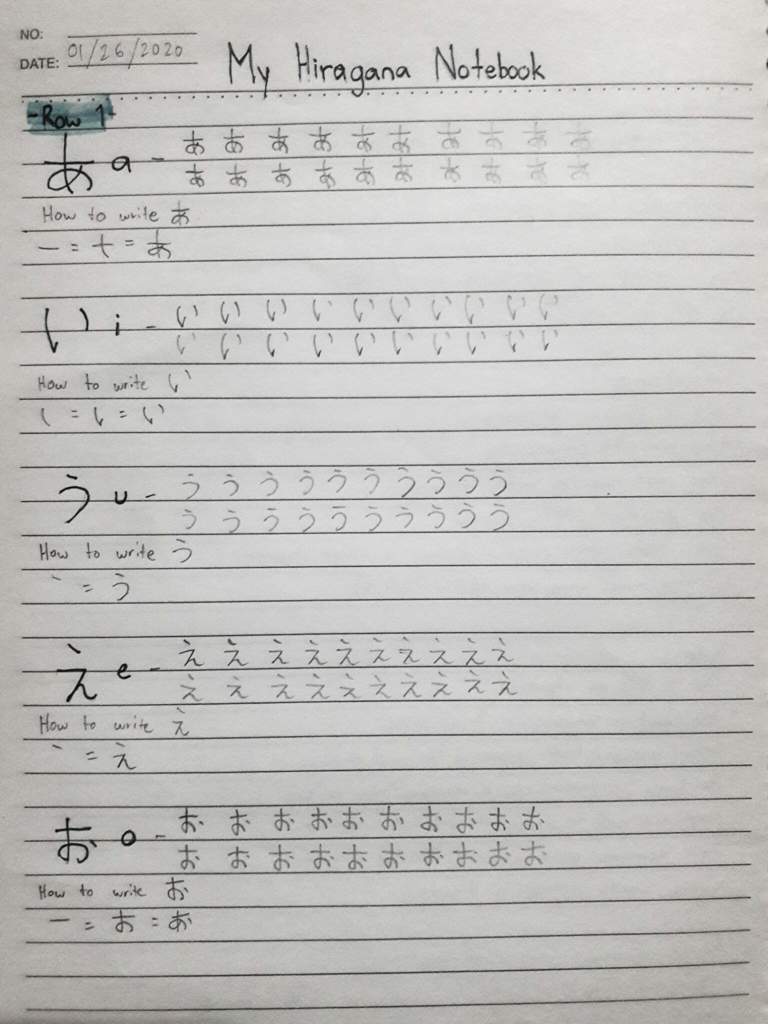 NO:
DATE: 01/26/2020
My Hiragana Notebook
-Row 1-
あ a - あ あ あ あ あ あ あ あ あ あ
あ あ あ あ あ あ あ あ あ あ
How to write あ
一 = 十 = あ
い i - い い い い い い い い い い
い い い い い い い い い い
How to write い
い = い
う u - う う う う う う う う う う
う う う う う う う う う う
How to write う
丶 = う
え e - え え え え え え え え え え
え え え え え え え え え え
How to write え
丶 = え
お o - お お お お お お お お お お
お お お お お お お お お お
How to write お
一 = お = お